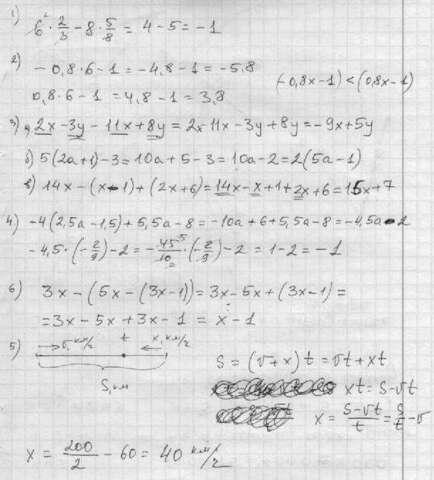 1)
6 · 2/3 - 8 · 5/8 = 4 - 5 = -1
2)
-0,8·6-1 = -4,8-1 = -5,8
(-0,8x-1) < (0,8x-1)
0,8·6-1 = 4,8-1 = 3,8
3) а) 2x-3y-11x+8y = 2x 11x-3y+8y = -9x+5y
б) 5(2a+1)-3 = 10a+5-3 = 10a-2 = 2(5a-1)
в) 14x-(x-1)+(2x+6) = 14x-x+1+2x+6 = 15x+7
4) -4(2,5a-1,5)+5,5a-8 = -10a+6+5,5a-8 = -4,5a-2
-4,5·(-2/9)-2 = -45/10·(-2/9)-2 = 1-2 = -1
6) 3x-(5x-(3x-1)) = 3x-5x+(3x-1) =
= 3x-5x+3x-1 = x-1
5)
v, км/ч t x, км/ч
S, км
S = (v+x)t = vt+xt
xt = S-vt
x = (S-vt)/t = S/t - v
x = 200/2 - 60 = 40 км/ч